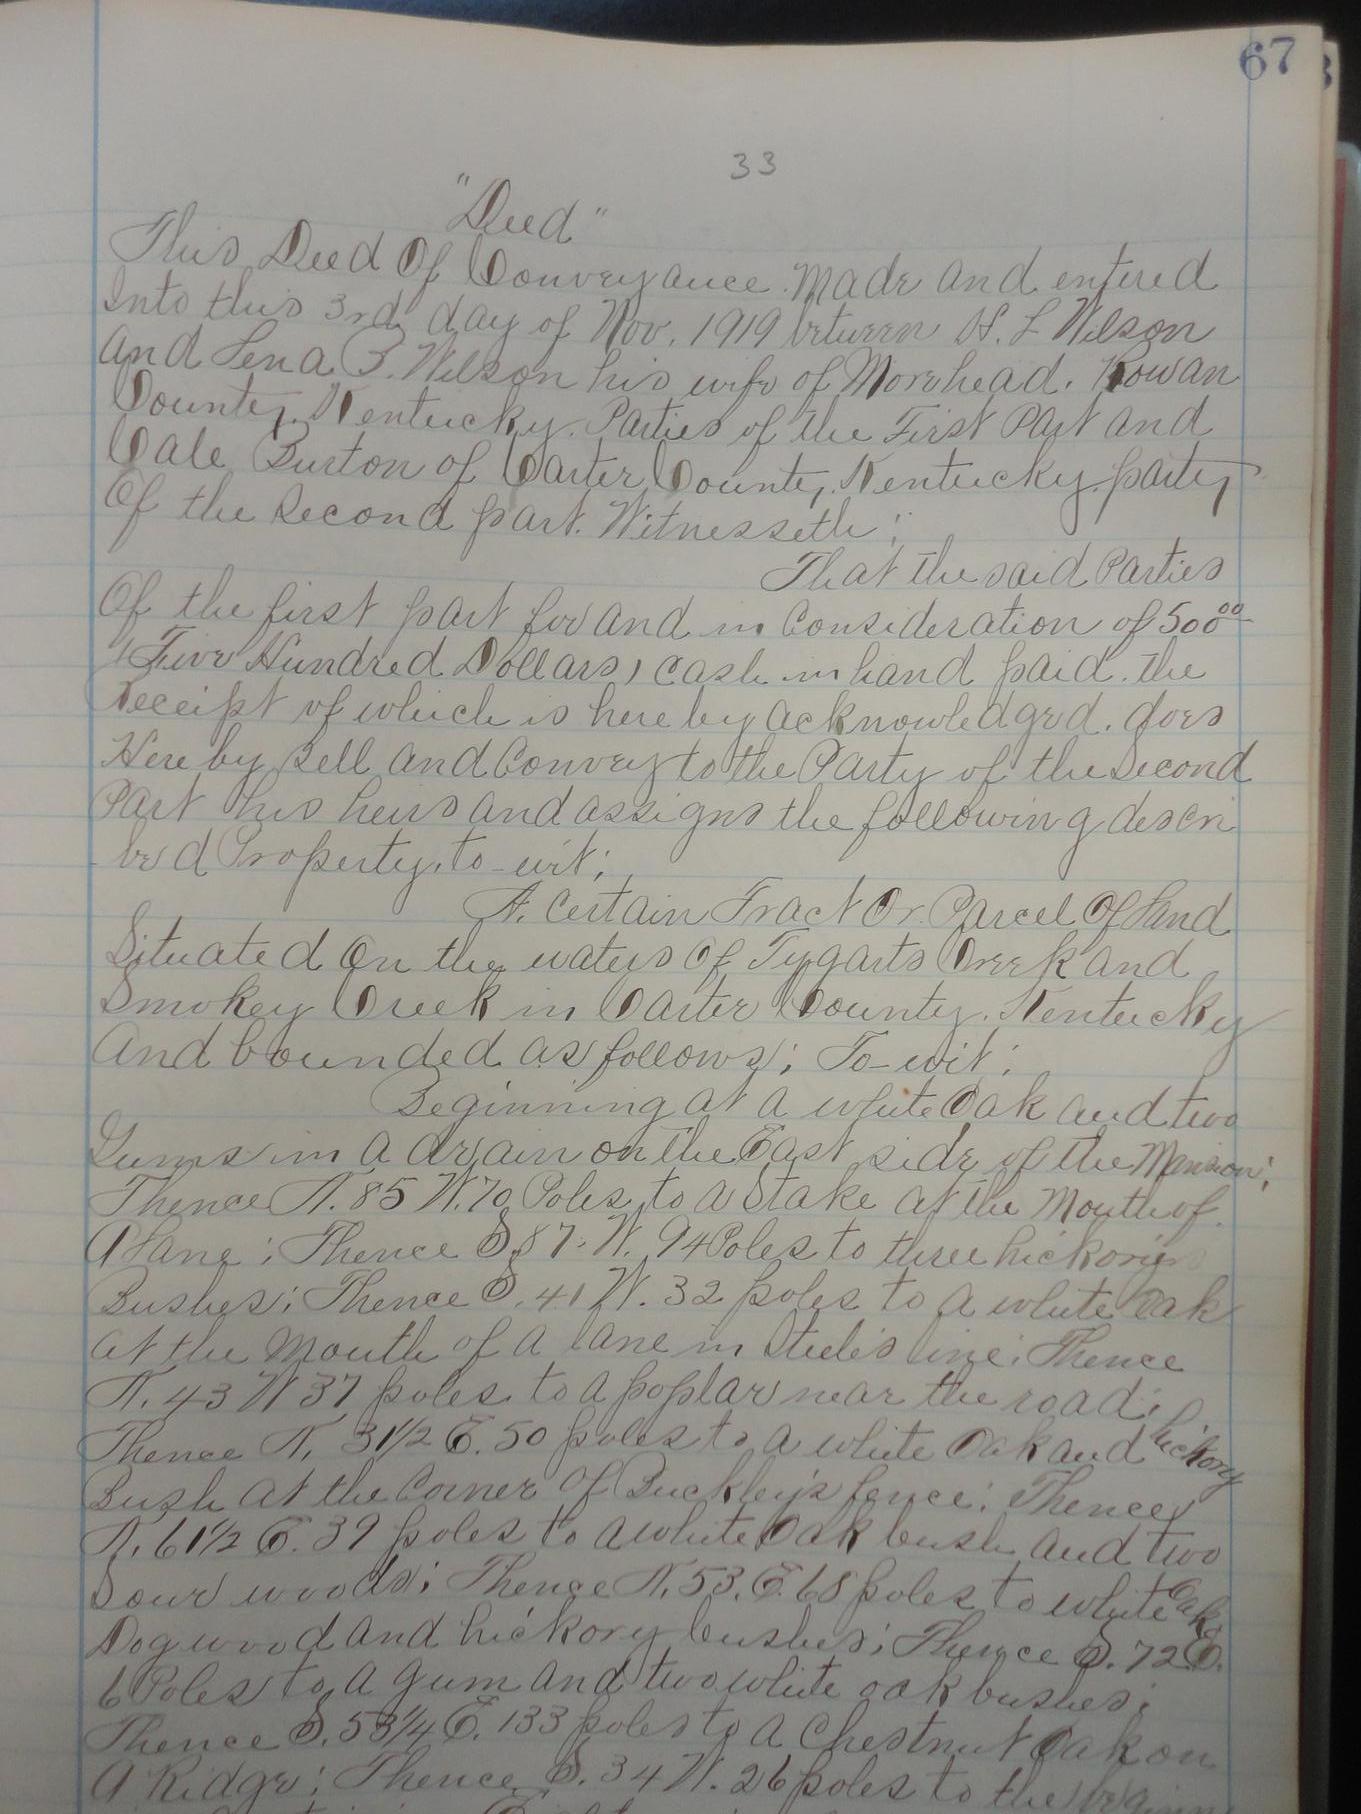 67
33
"Deed"
This Deed Of Conveyance Made and entered
Into this 3rd day of Nov. 1919 between H. L Wilson
And Lena B. Wilson his wife of Morehead. Rowan
County, Kentucky. Parties of the First Part and
Cale Burton of Carter County, Kentucky party
Of the Second part. Witnesseth;
That the said Parties
Of the first part for and in Consideration of 500 00
(Five Hundred Dollars) cash in hand paid. the
Receipt of which is here by acknowledged. does
Here by Sell and Convey to the Party of the Second
Part his heirs and assigns the following descri
bed Property, to-wit;
A. Certain Tract Or Parcel Of Land
Situated On the waters Of Tygarts Creek and
Smokey Creek in Carter County. Kentucky
And bounded as follows; To-wit;
Beginning at a white Oak and two
Gums in a drain on the East side of the Mansion;
Thence N. 85 W. 70 Poles to a Stake at the Mouth of
A Lane; Thence S. 87. W. 94 Poles to three hickory
Bushes; Thence S. 41 W. 32 poles to a white Oak
At the Mouth of a lane in Steele's line; Thence
N. 43 W 37 poles to a poplar near the road;
Thence N. 31 1/2 E. 50 poles to a white Oak and hickory
Bush at the Corner Of Buckley's fence; Thence
N. 61 1/2 E. 39 poles to a white Oak bush and two
Sour woods; Thence N. 53. E. 68 poles to white Oak
Dogwood and hickory bushes; Thence S. 72 E.
6 Poles to a gum and two white oak bushes;
Thence S. 53 1/4 E. 133 poles to a Chestnut Oak on
A Ridge; Thence S. 34 W. 26 poles to the